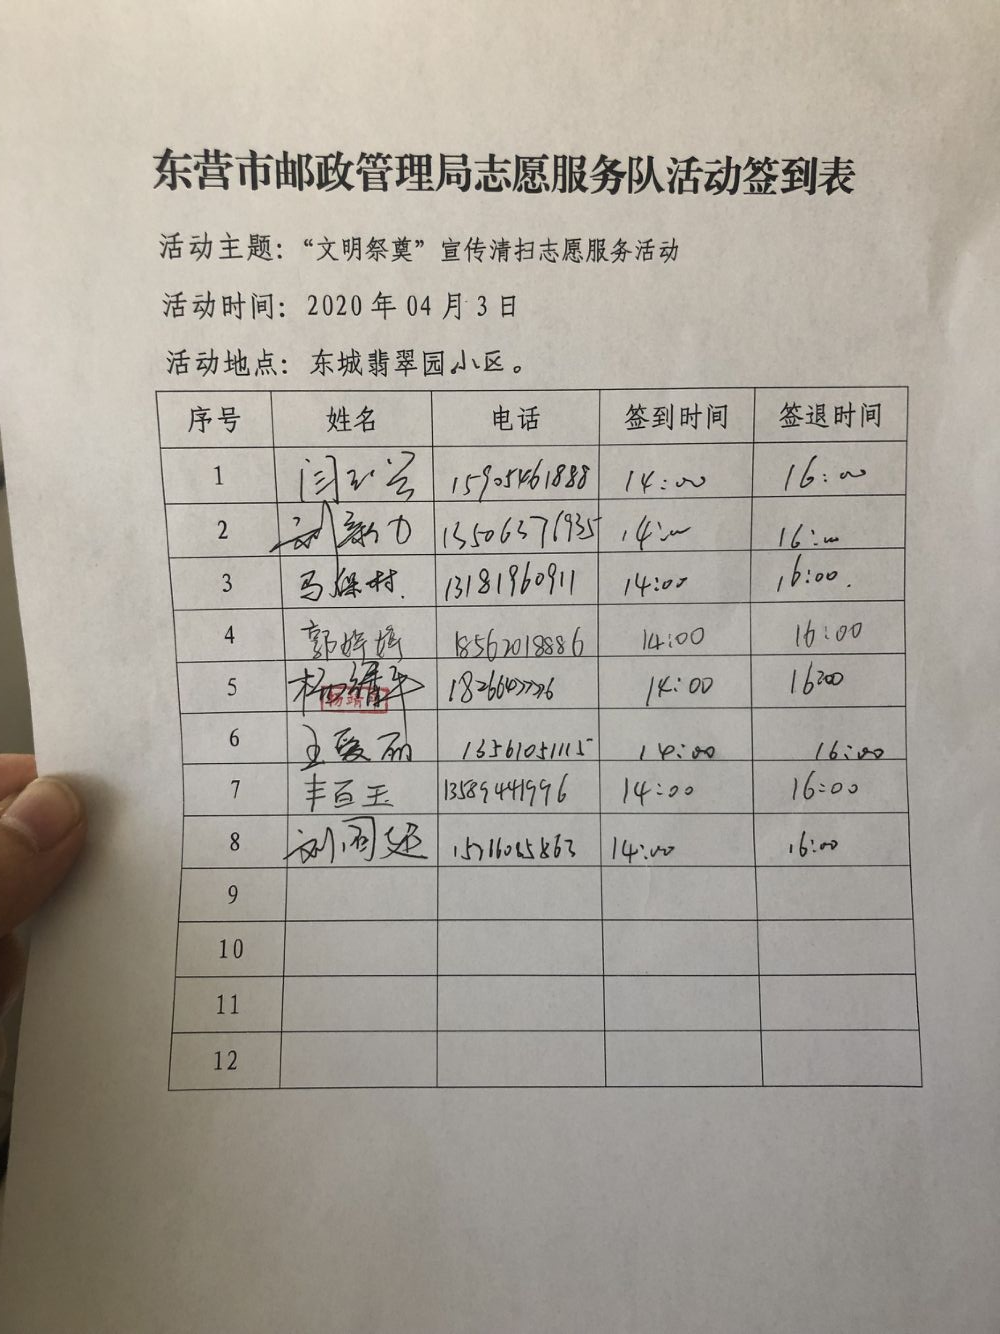 东营市邮政管理局志愿服务队活动签到表
活动主题：“文明祭奠”宣传清扫志愿服务活动
活动时间：2020年04月3日
活动地点：东城翡翠园小区。
序号 姓名 电话 签到时间 签退时间
1 闫 15905461888 14:00 16:00
2 刘新力 13506376935 14:00 16:00
3 马保村. 13181960911 14:00 16:00.
4 郭婷婷 18562018886 14:00 16:00
5 杨 14:00 16:00
6 王爱丽 13561051115 14:00 16:00
7 丰百玉 13589441996 14:00 16:00
8 刘同廷 14:00 16:00
9
10
11
12